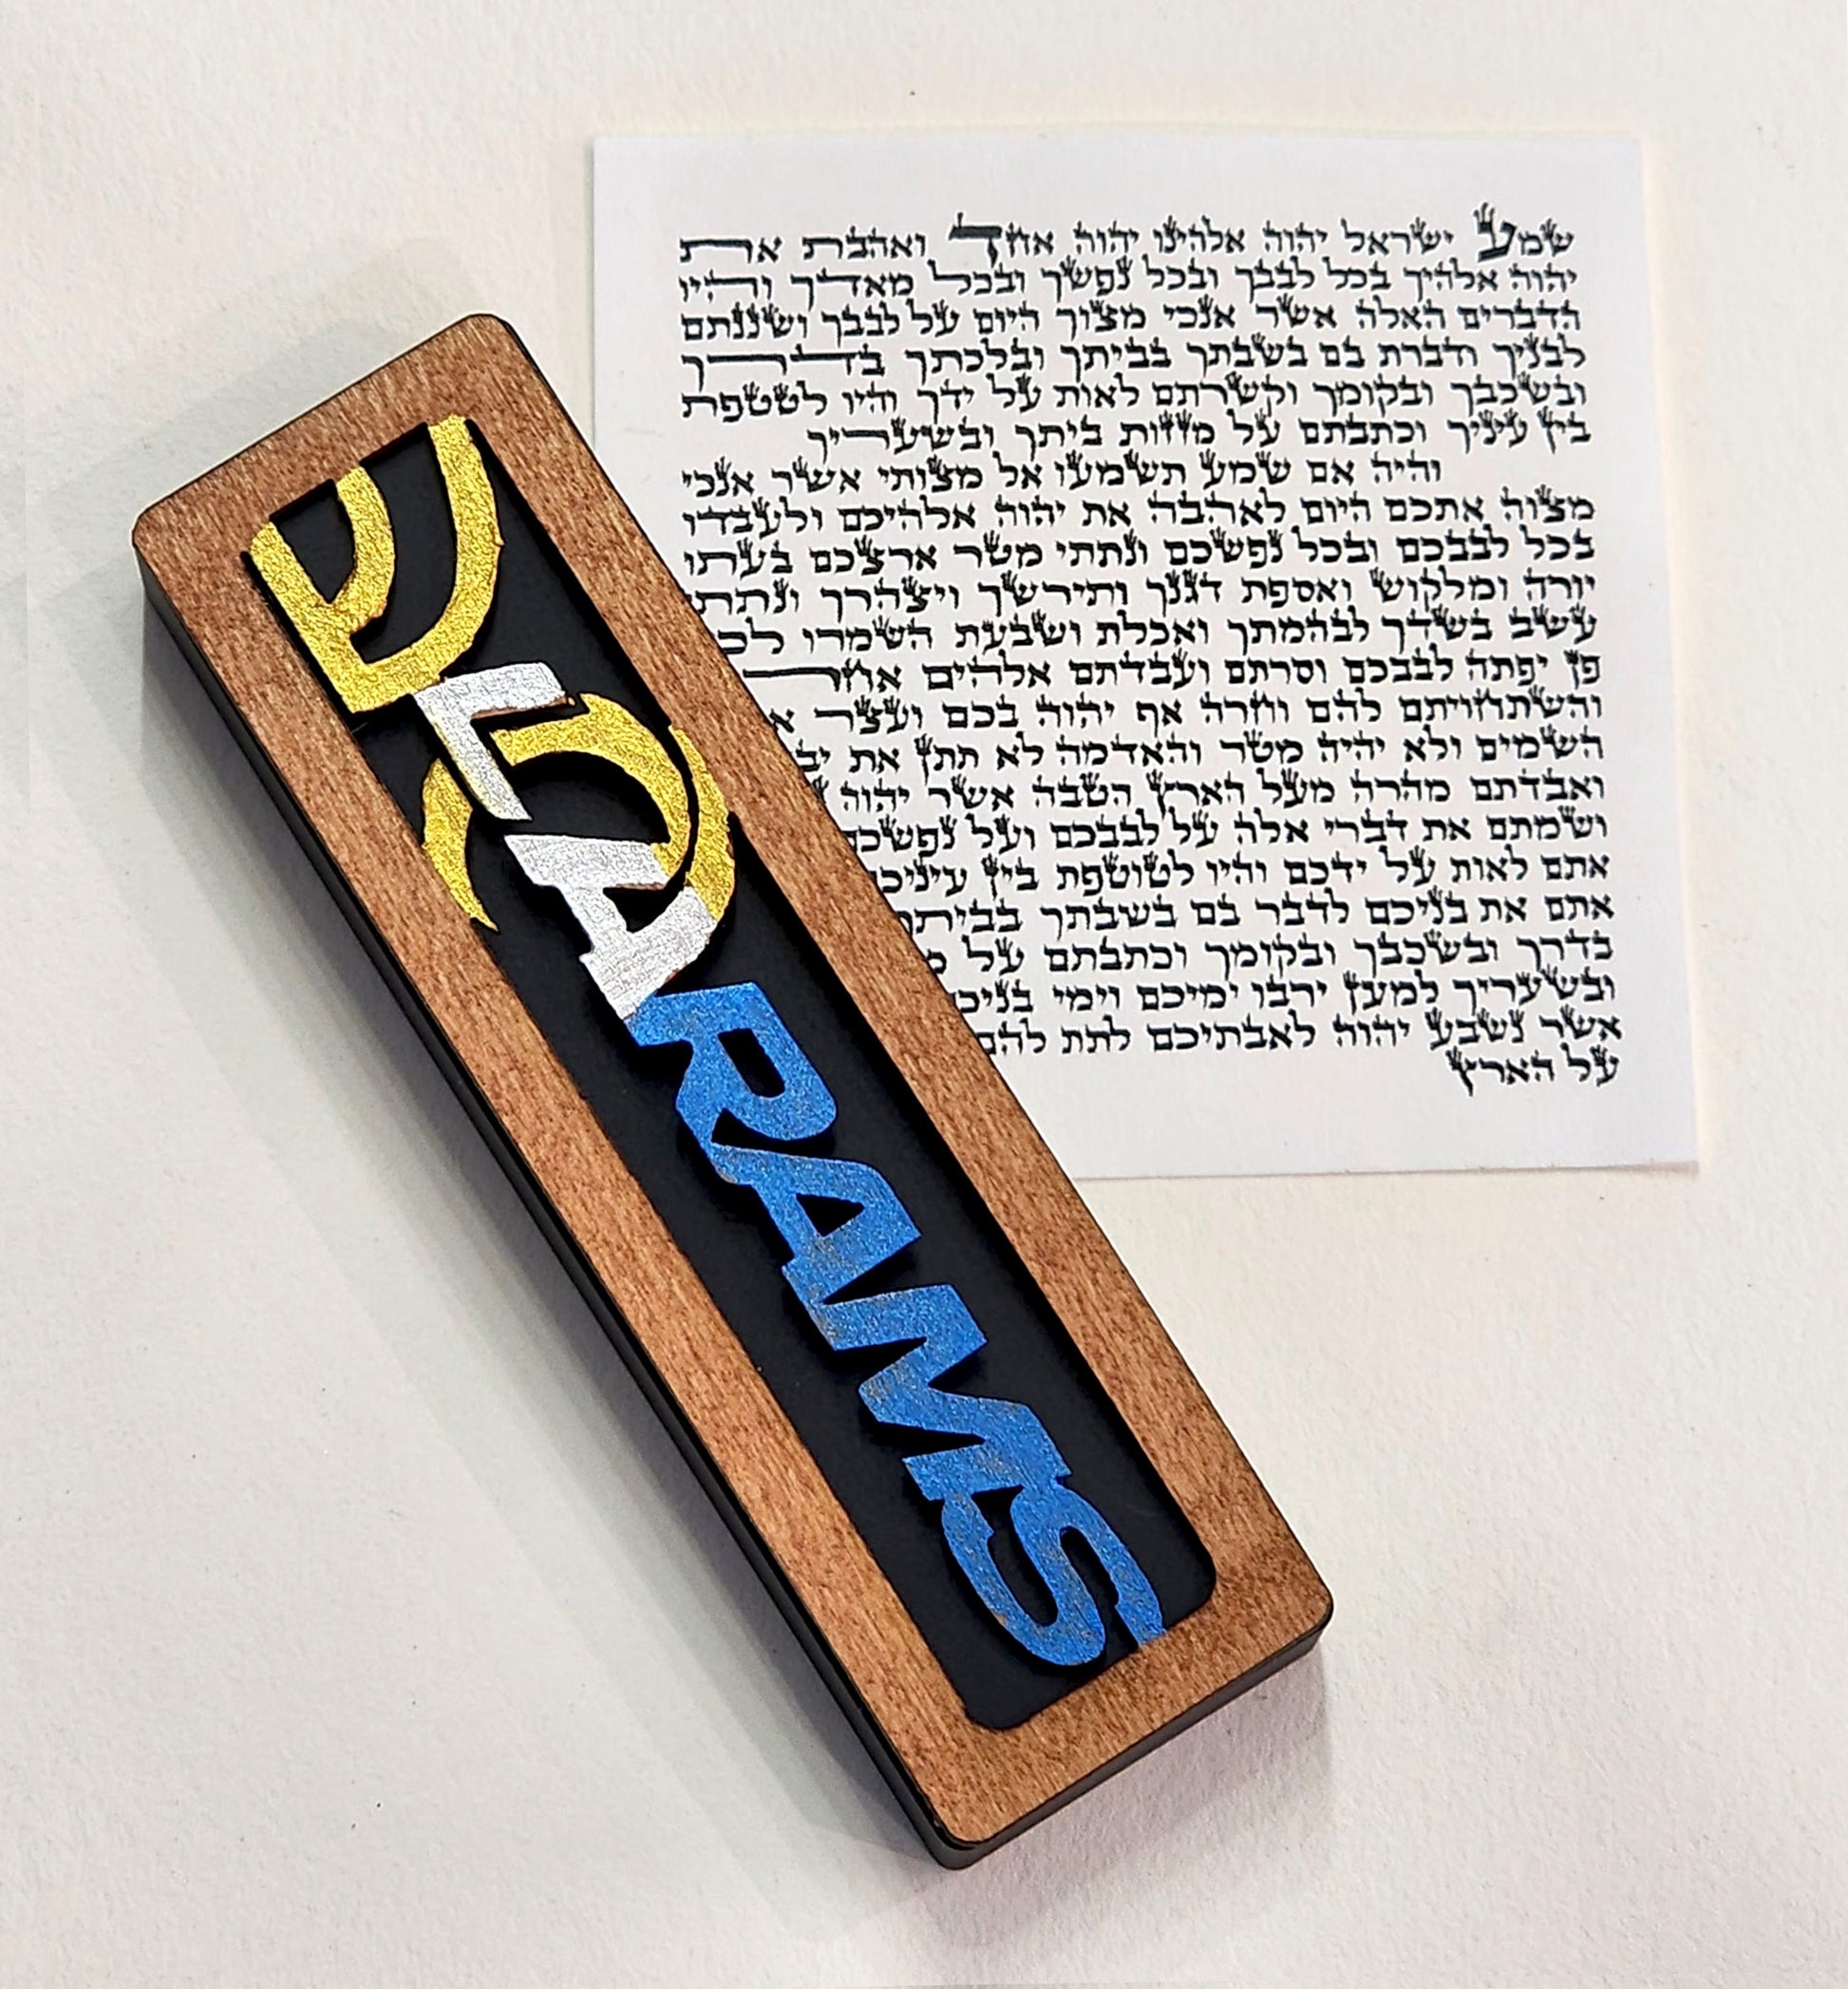 ש
LA
RAMS
שמע ישראל יהוה אלהינו יהוה אחד ואהבת את
יהוה אלהיך בכל לבבך ובכל נפשך ובכל מאדך והיו
הדברים האלה אשר אנכי מצוך היום על לבבך ושננתם
לבניך ודברת בם בשבתך בביתך ובלכתך בדרך
ובשכבך ובקומך וקשרתם לאות על ידך והיו לטטפת
בין עיניך וכתבתם על מזזות ביתך ובשעריך
והיה אם שמע תשמעו אל מצותי אשר אנכי
מצוה אתכם היום לאהבה את יהוה אלהיכם ולעבדו
בכל לבבכם ובכל נפשכם ונתתי מטר ארצכם בעתו
יורה ומלקוש ואספת דגנך ותירשך ויצהרך ונתתי
עשב בשדך לבהמתך ואכלת ושבעת השמרו
פן יפתה לבבכם וסרתם ועבדתם אלהים
והשתחויתם להם וחרה אף יהוה בכם ועצר
השמים ולא יהיה מטר והאדמה לא תתן את
ואבדתם מהרה מעל הארץ הטבה אשר יהוה
ושמתם את דברי אלה על לבבכם ועל נפשכם
אתם לאות על ידכם והיו לטוטפת בין
אתם את בניכם לדבר בם בשבתך בביתך
בדרך ובשכבך ובקומך וכתבתם על
ובשעריך למען ירבו ימיכם וימי
אשר נשבע יהוה לאבתיכם לתת להם
על הארץ